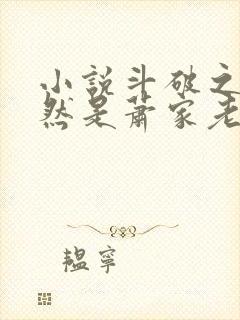 小說斗破之
然是蕭家老
韞寧